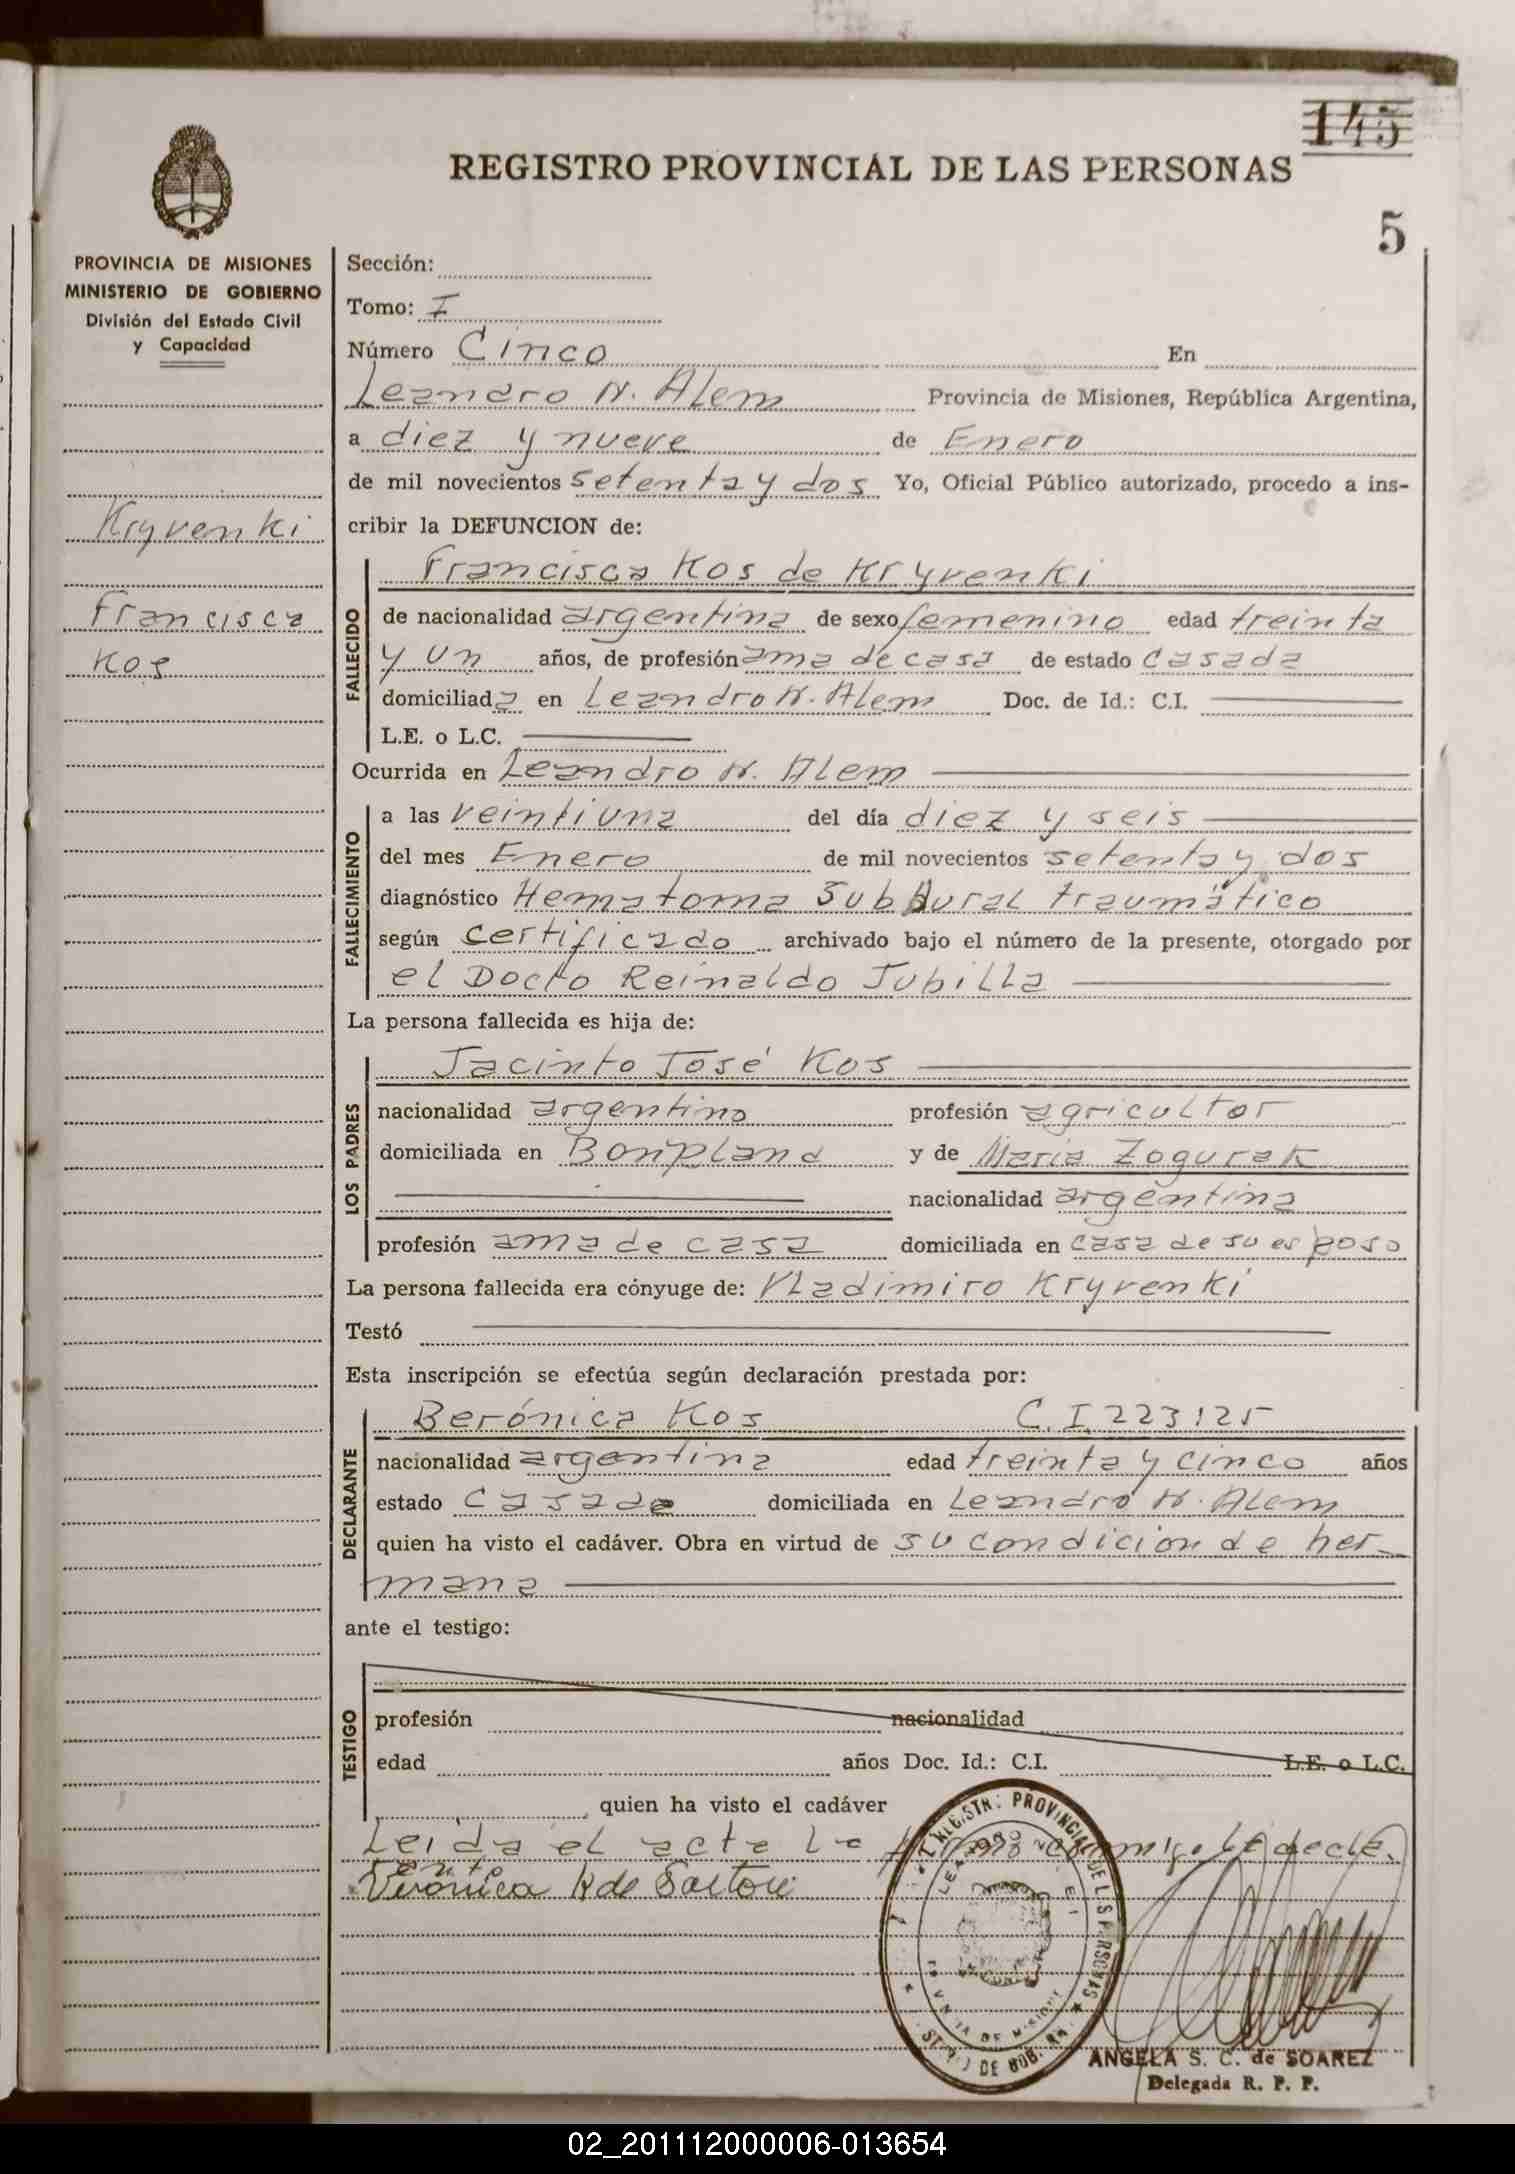 145
REGISTRO PROVINCIAL DE LAS PERSONAS
5
PROVINCIA DE MISIONES
MINISTERIO DE GOBIERNO
División del Estado Civil
y Capacidad
Kryvenki
Francisca
Kos
Sección:
Tomo: I
Número Cinco En
Leandro N. Alem Provincia de Misiones, República Argentina,
a diez y nueve de Enero
de mil novecientos setenta y dos Yo, Oficial Público autorizado, procedo a ins-
cribir la DEFUNCION de:
FALLECIDO
Francisca Kos de Kryvenki
de nacionalidad argentina de sexo femenino edad treinta
y un años, de profesión ama de casa de estado casada
domiciliada en Leandro N. Alem Doc. de Id.: C.I.
L.E. o L.C.
Ocurrida en Leandro N. Alem
FALLECIMIENTO
a las veintiuna del día diez y seis
del mes Enero de mil novecientos setenta y dos
diagnóstico Hematoma Subdural traumático
según certificado archivado bajo el número de la presente, otorgado por
el Docto Reinaldo Jubilla
La persona fallecida es hija de:
LOS PADRES
Jacinto José Kos
nacionalidad argentino profesión agricultor
domiciliada en Bonpland y de María Zogurak
nacionalidad argentina
profesión ama de casa domiciliada en casa de su esposo
La persona fallecida era cónyuge de: Vladimiro Kryvenki
Testó
Esta inscripción se efectúa según declaración prestada por:
DECLARANTE
Berónica Kos C.I. 223125
nacionalidad argentina edad treinta y cinco años
estado casada domiciliada en Leandro N. Alem
quien ha visto el cadáver. Obra en virtud de su condicion de her-
mana
ante el testigo:
TESTIGO
profesión nacionalidad
edad años Doc. Id.: C.I. L.E. o L.C.
quien ha visto el cadáver
Leida el acta la conmigo la decla.
rante
Verónica K de Sartori
REGISTR. PROVINCIAL DE LAS PERSONAS
DE GOB.
DE MISIONE
ANGELA S. C. de SOAREZ
Delegada R. P. P.
02_201112000006-013654